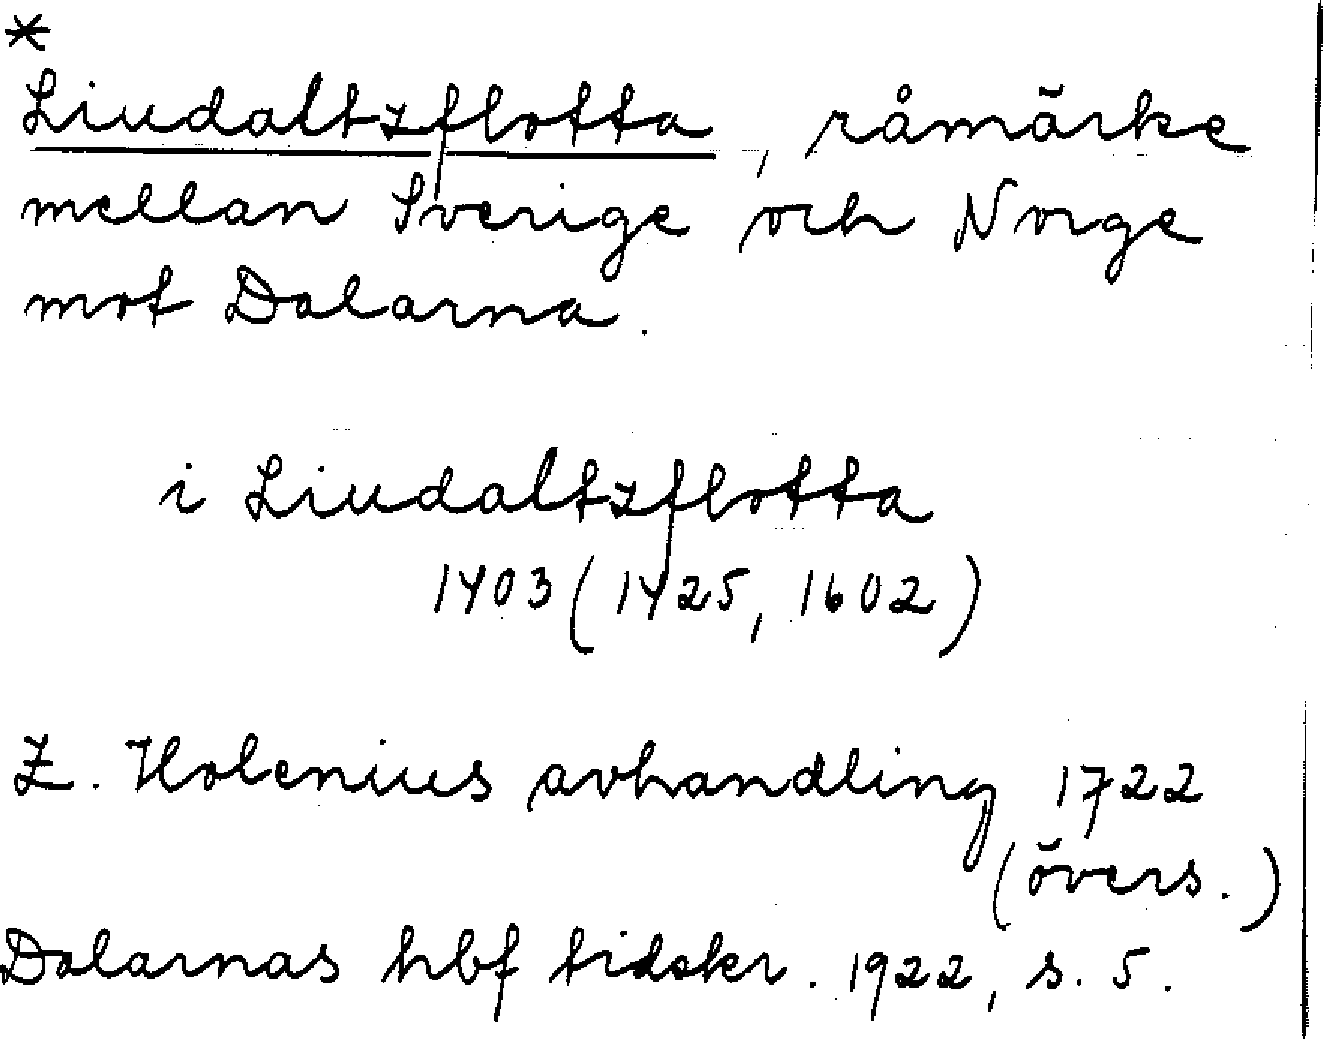 *
Liudaltzflotta, råmärke
mellan Sverige och Norge
mot Dalarna.
i Liudaltzflotta
1403 (1425, 1602)
Z. Holenius avhandling 1722
(övers.)
Dalarnas hbf tidskr. 1922, s. 5.